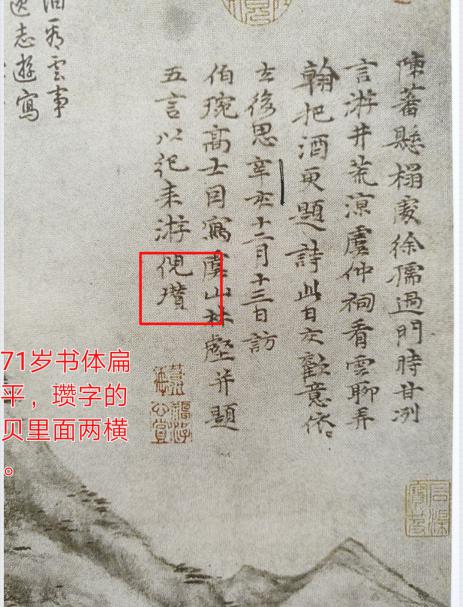 陳蕃懸榻處徐孺過門時甘冽
言游井荒涼虞仲祠看雲聊弄
翰把酒更題詩此日交歡意依〻
去後思辛亥十二月十三日訪
伯琬高士因寫虞山林壑并題
五言以紀来游倪瓚
雲事
志遊寫
71岁书体扁
平，瓒字的
贝里面两横
。